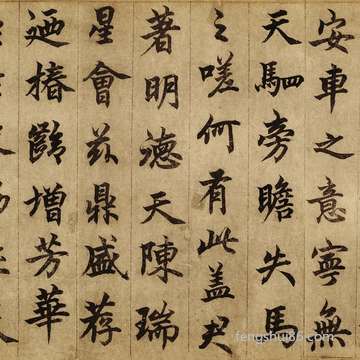 安車之意寧無
天駟旁瞻失馬
之嗟何有此盖
著明德天陳瑞
星會茲鼎盛荐
迺椿齡增芳華
fengshui86.com